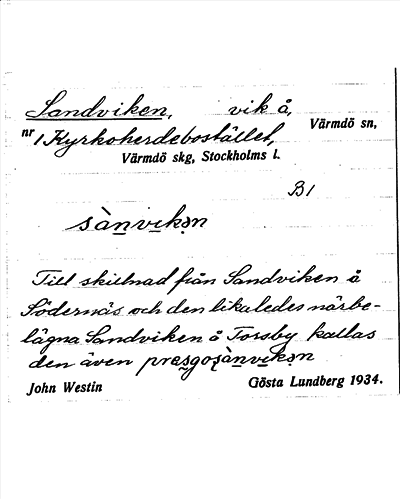 Sandviken, vik å,
nr 1 Kyrkoherdebostället, Värmdö sn,
Värmdö skg, Stockholms l.
B1
sànvikən
Till skillnad från Sandviken å
Södernäs och den likaledes närbe-
lägna Sandviken å Torsby kallas
den även
John Westin Gösta Lundberg 1934.